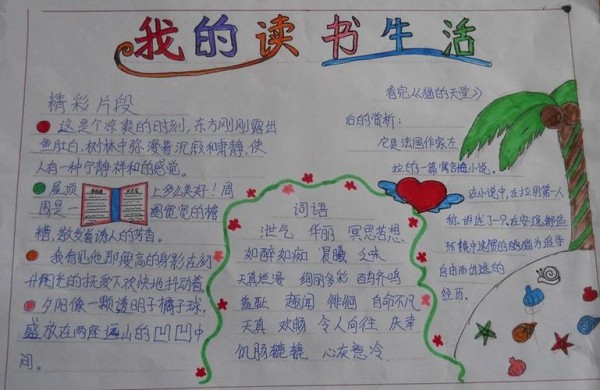 我的读书生活
精彩片段
这是个凉爽的时刻,东方刚刚露出
鱼肚白,树林中弥漫着沉寂和肃静,使
人有一种宁静祥和的感觉。
屋顶上多么美好!周
围是一圈宽宽的檐
槽,散发着诱人的芳香。
我看见他那瘦高的身影在幼
夕阳像一颗透明子橘子球,
盛放在两座远山的凹凹中
间。
词语
泄气 华丽 冥思苦想
如醉如痴
天真烂漫 绚丽多彩 百鸟齐鸣
羞耻 趣闻 徘徊 自命不凡
天真 欢畅 令人向往 庆幸
饥肠辘辘 心灰意冷
看完《猫的天堂》
后的赏析:
它是法国作家左
拉的一篇寓言小说。
这小说中,左拉用第一人
称讲述了一只在安逸舒适
环境中
自由而出逃的
经历。